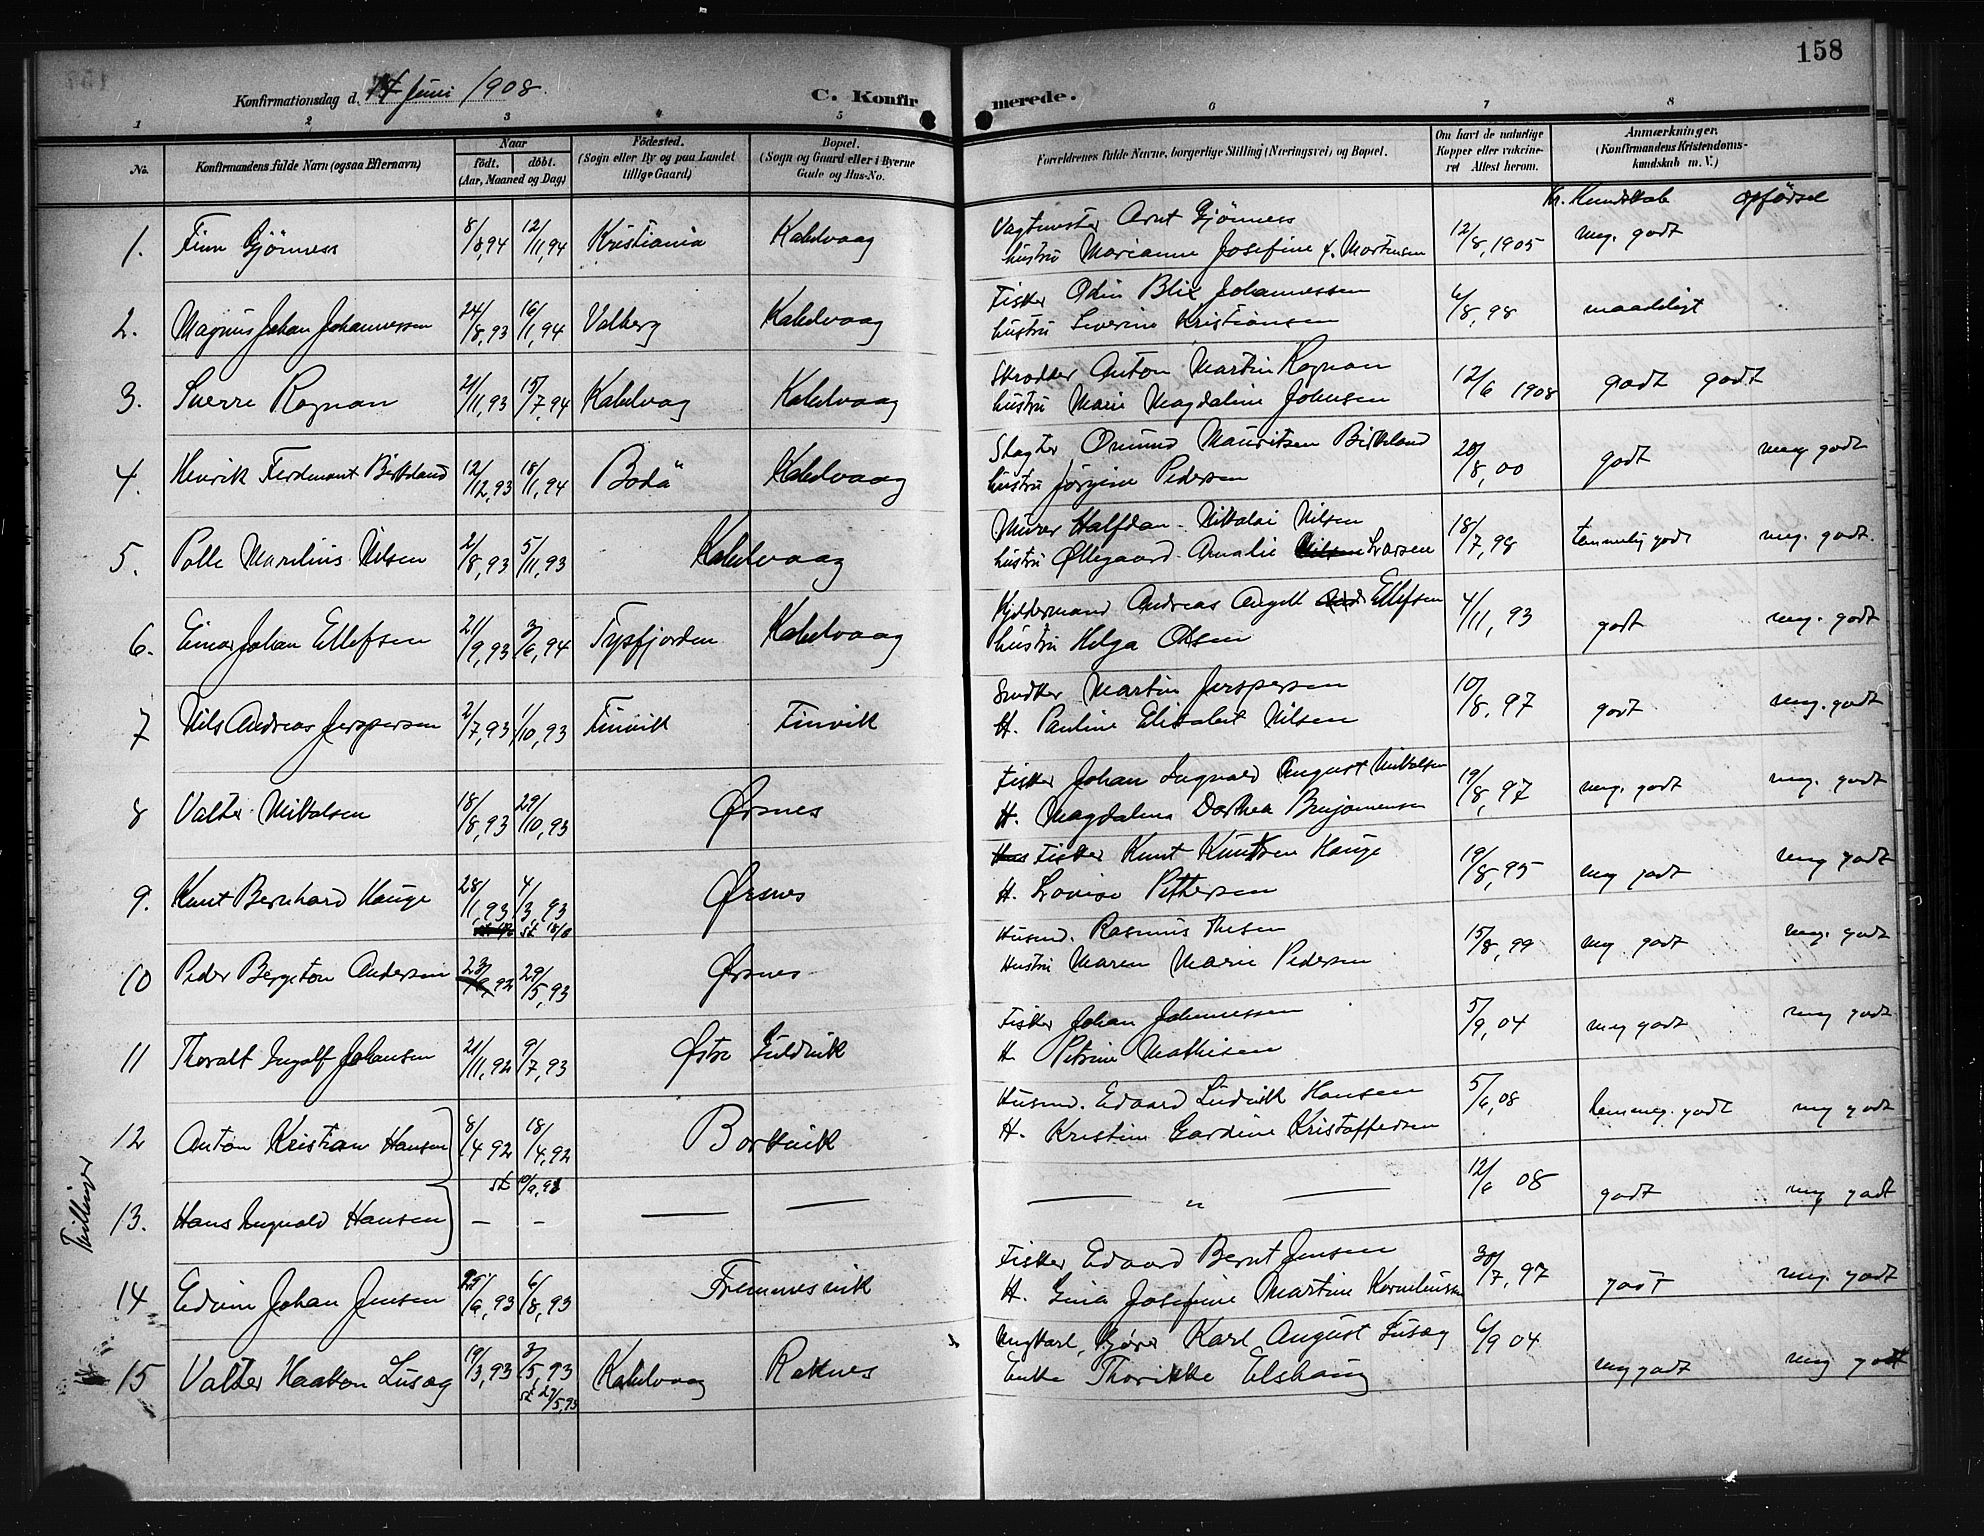 158
Konfirmationsdag d. 14 Juni 1908.
C. Konfirmerede.
1 2 3 4 5 6 7 8
No.
Konfirmandens fulde Navn (ogsaa Efternavn)
Naar
födt. döbt.
(Aar, Maaned og Dag)
Födested.
(Sogn eller By og paa Landet tillige Gaard)
Bopæl.
(Sogn og Gaard eller i Byerne Gade og Hus-No.
Forældrenes fulde Navne, borgerlige Stilling (Næringsvei) og Bopæl.
Om havt de naturlige Kopper eller vakcineret Attest herom.
Anmærkninger.
(Konfirmandens Kristendomskundskab m. V.)
Kr. Kundskab opførsel
1. Finn Gjönness 8/8,94 12/11,94 Kristiania Kabelvaag Vagtmester Arnt Gjönness 12/8,1905 meg. godt
hustru Marianne Josefine f. Mortensen
2. Magnus Johan Johannessen 24/8,93 16/1,94 Valberg Kabelvaag Fisker Odin Blix Johannessen 6/8,98 maadeligt
hustru Severine Kristiansen
3. Sverre Rognan 2/11,93 15/7,94 Kabelvag Kabelvaag Skrædder Anton Martin Rognan 12/6 1908 godt godt
hustru Marie Magdaline Johnsen
4. Henrik Ferdinant Birkeland 12/12,93 18/11,94 Bodö Kabelvaag Slagter Omund Mauritsen Birkeland 20/8,00 godt meg godt
hustru Jørgine Pedersen
5. Palle Marelius Nilsen 2/8,93 5/11,93 Kabelvaag Murer Halfdan Nikolai Nilsen 18/7,98 temmelig godt meg. godt.
hustru Øllegaard Amalie Larsen
6. Einar Johan Ellefsen 21/9,93 3/6,94 Tysfjorden Kabelvaag Kjeldermand Andreas Angell Ellefsen 4/11,93 godt meg. godt
hustru Helga Olsen
7 Nils Andreas Jerspersen 2/7,93 1/10,93 Finvik Finvik Snedker Martin Jerspersen 10/8,97 godt meg. godt
H. Pauline Elisabet Nilsen
8 Valter Mikalsen 18/8,93 29/10,93 Ørsnes Fisker Johan Ingvald August Mikalsen 19/8,97 meg. godt meg. godt
H. Magdalena Dorthea Benjaminsen
9. Knut Bernhard Hauge 28/1,93 4/3,93 Ørsnes Fisker Knut Knutsen Hauge 19/8,95 meg godt meg godt
st 18/8
H. Lovise Pettersen
10 Peder Bergeton Andersen 23/9,92 29/5,93 Ørsnes Husmd. Rasmus Thesen 15/8,99 meg godt meg. godt
Hustru Maren Marie Pedersen
11 Thoralf Ingolf Johansen 21/11,92 9/7,93 Østre Guldvik Fisker Johan Johannessen 5/9,04 meg godt meg godt
H Petrine Mathisen
12 Anton Kristian Hansen 8/4 92 18/4,92 Borkvik Husmd. Edvard Ludvik Hansen 5/6,08 temmeg. godt meg godt
H. Kristine Gardine Kristoffersen
13. Hans Ingvald Hansen – – — — — „ — 12/6 08 godt meg godt
Tvillinger
14 Edvin Johan Jensen 25/6,93 6/8,93 Fremnesvik Fisker Edvard Bernt Jensen 30/7,97 godt meg. godt
H. Gina Josefine Martine Korneliussen
15 Valter Haakon Lusæg 19/3,93 3/5,93 Kabelvaag Raknes Ungkarl, Karl August Lusæg 6/9 04 meg godt meg godt
Enke Thorikke Elshaug